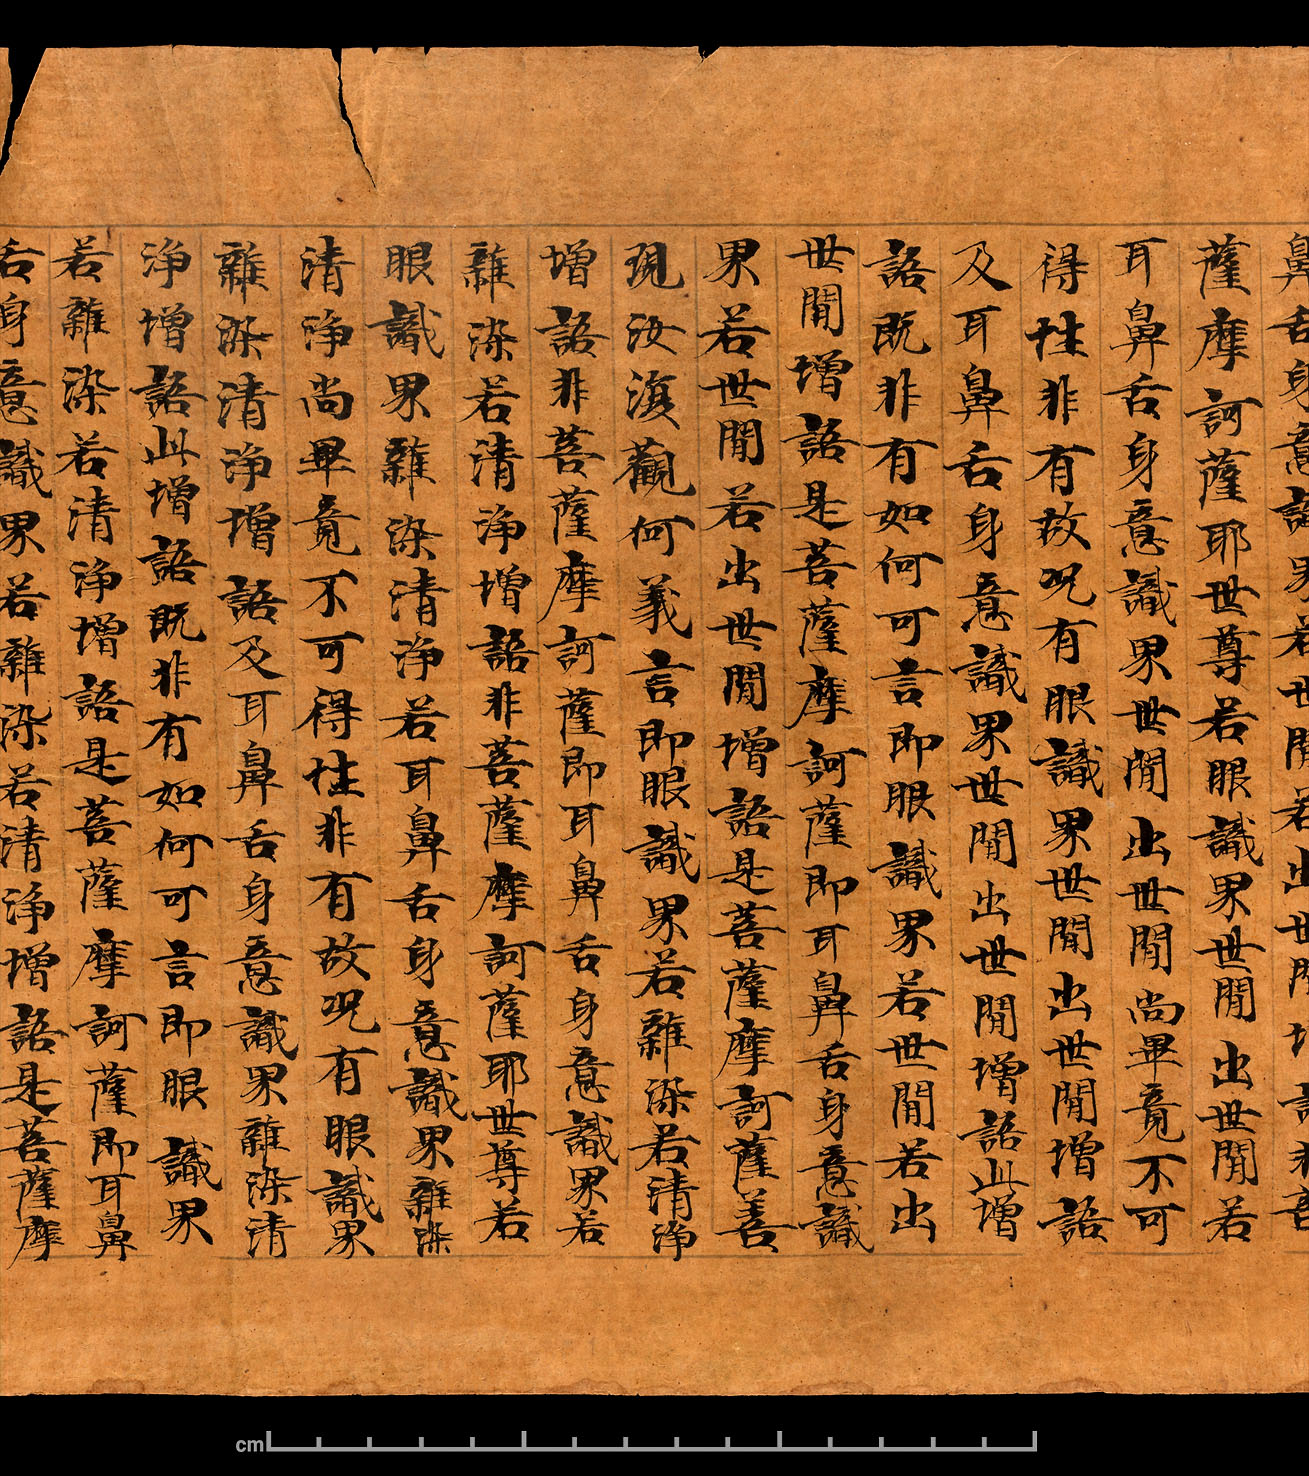 鼻舌身意識界若世間若出世間增語非菩
薩摩訶薩耶世尊若眼識界世間出世間若
耳鼻舌身意識界世間出世間尚畢竟不可
得性非有故況有眼識界世間出世間增語
及耳鼻舌身意識界世間出世間增語此增
語既非有如何可言即眼識界若世間若出
世間增語是菩薩摩訶薩即耳鼻舌身意識
界若世間若出世間增語是菩薩摩訶薩善
現汝復觀何義言即眼識界若雜染若清淨
增語非菩薩摩訶薩即耳鼻舌身意識界若
雜染若清淨增語非菩薩摩訶薩耶世尊若
眼識界雜染清淨若耳鼻舌身意識界雜染
清淨尚畢竟不可得性非有故況有眼識界
雜染清淨增語及耳鼻舌身意識界雜染清
淨增語此增語既非有如何可言即眼識界
若雜染若清淨增語是菩薩摩訶薩即耳鼻
舌身意識界若雜染若清淨增語是菩薩摩
cm